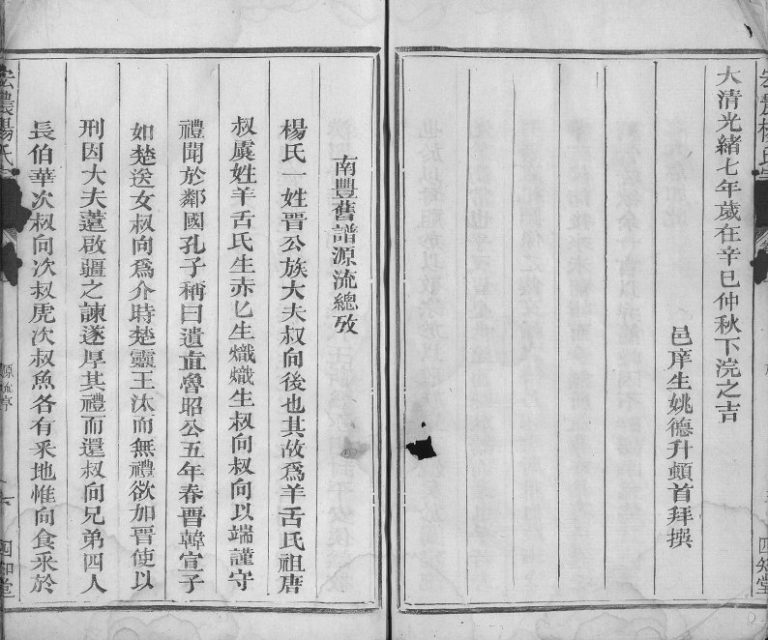 大清光緒七年歲在辛巳仲秋下浣之吉
邑庠生姚德升頓首拜撰
南豐舊譜源流總攷
楊氏一姓晋公族大夫叔向後也其故爲羊舌氏祖唐
叔虞姓羊舌氏生赤匕生熾熾生叔向叔向以端謹守
禮聞於鄰國孔子稱曰遺直魯昭公五年春晋韓宣子
如楚送女叔向爲介時楚靈王汰而無禮欲加晋使以
刑因大夫薳啟疆之諫遂厚其禮而還叔向兄弟四人
長伯華次叔向次叔虎次叔魚各有釆地惟向食釆於
宏農楊氏
六
四知堂